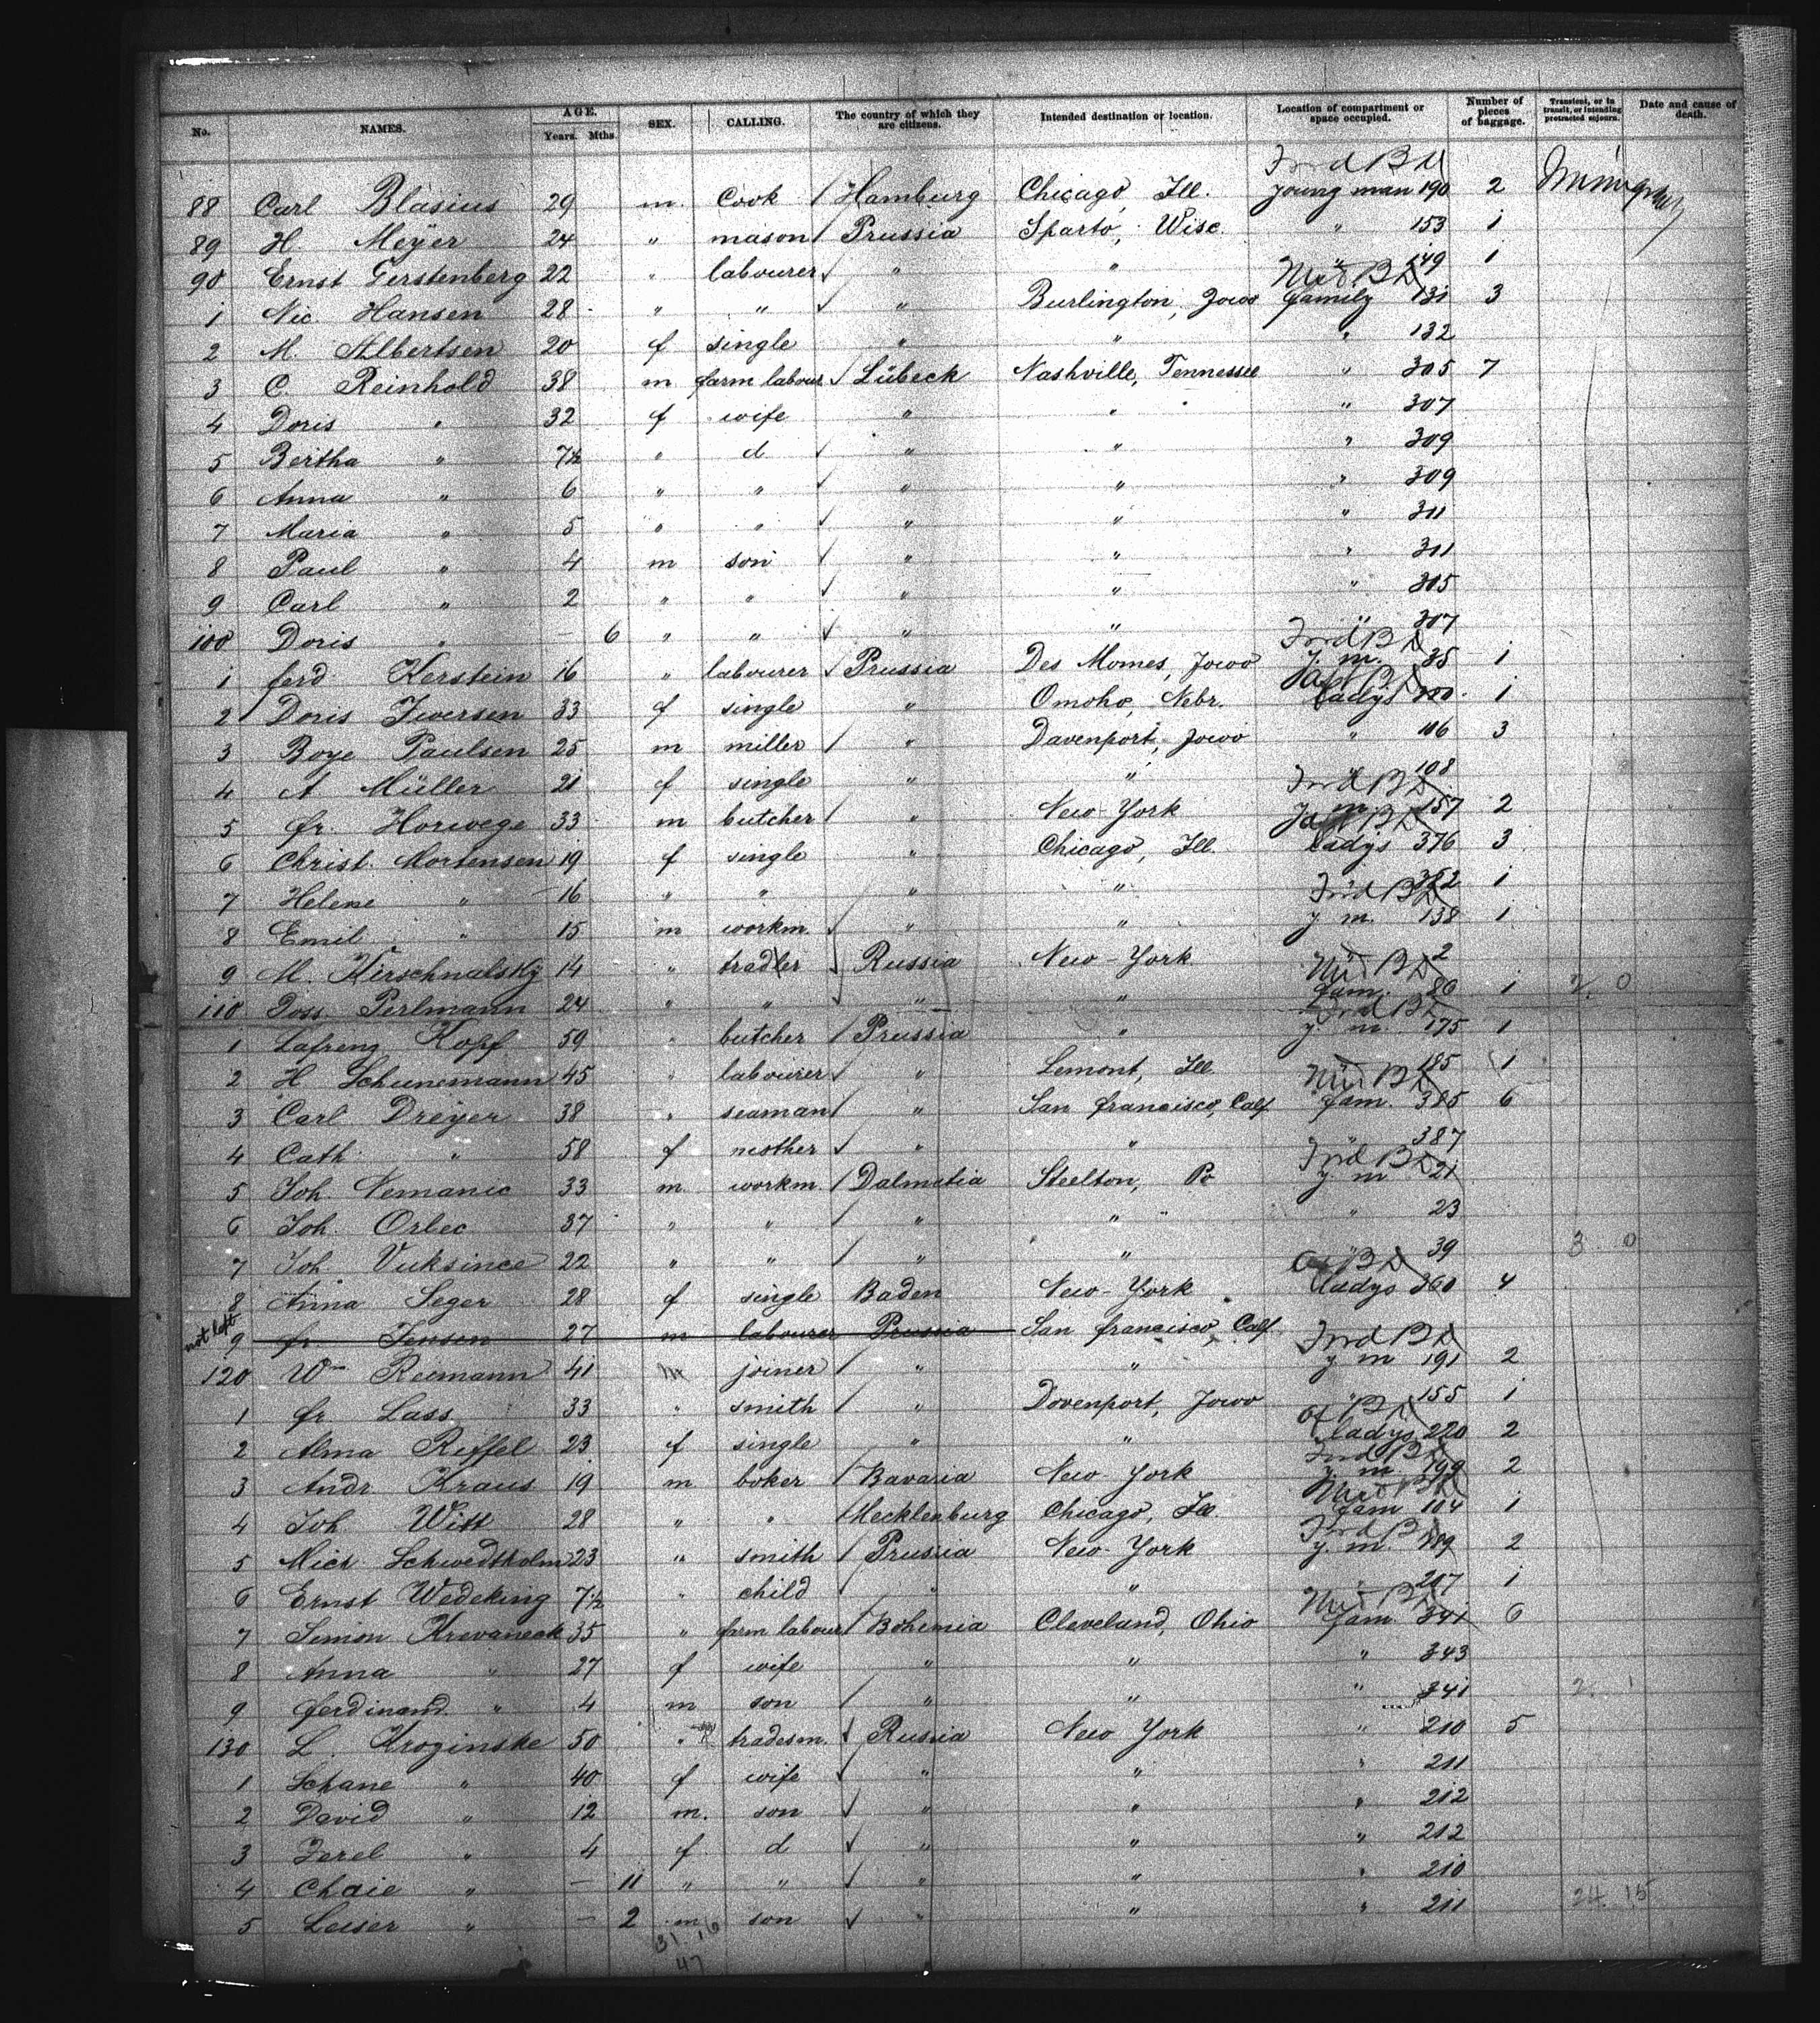 No. NAMES. AGE. Years. Mths. SEX. CALLING. The country of which they are citizens. Intended destination or location. Location of compartment or space occupied. Number of pieces of baggage. Transient, or in transit, or intending protracted sojourn. Date and cause of death.
88 Carl Blasius 29 m. Cook / Hamburg Chicago, Ill. young man 190 2
89 H. Meyer 24 " mason / Prussia Sparto, Wisc. " 153 1
90 Ernst Gerstenberg 22 " labourer " " " 149 1
1 Nic. Hansen 28 " " " Burlington, Jowo family 131 3
2 M. Albertsen 20 f single " " " 132
3 C. Reinhold 38 m farm labour Lübeck Nashville, Tennessee " 305 7
4 Doris " 32 f wife " " " 307
5 Bertha " 7½ " d " " " 309
6 Anna " 6 " " " " " 309
7 Maria " 5 " " " " " 311
8 Paul " 4 m son " " " 311
9 Carl " 2 " " " " " 305
100 Doris " — 6 " " " " " 307
1 ferd Kerstein 16 " labourer Prussia Des Momes, Jowo y. m. 35 1
2 Doris Iwersen 33 f single " Omoho, Nebr. ladys 100 1
3 Boye Paulsen 25 m miller / " Davenport, Jowo " 106 3
4 A Müller 21 f single " " " 108
5 fr. Horwege 33 m butcher / " New-York y. m. 157 2
6 Christ. Mortensen 19 f single " Chicago, Ill. ladys 376 3
7 Helene " 16 " " " " " 362 1
8 Emil " 15 m workm. " " y. m. 138 1
9 M. Kirschnalsky 14 " tradler Russia New-York " 2
110 Joss. Perlmann 24 " " " " fam. 80 1 2. 0
1 Lafrenz Kopf 59 " butcher / Prussia " y. m. 175 1
2 H Schunemann 45 " labourer " Lemont, Ill. " 185 1
3 Carl Dreyer 38 " seaman / " San francisco, Calf. fam. 385 6
4 Cath. " 58 f mother " " " 387
5 Joh. Nemanic 33 m workm. / Dalmatia Steelton, Pa y. m 21
6 Joh. Orlec 37 " " / " " " 23
7 Joh Vuksince 22 " " / " " " 39 3. 0
8 Anna Seger 28 f single Baden New-York ladys 260 4
not left 9 fr. Jensen 27 m labourer Prussia San francisco, Calf.
120 Wm Reemann 41 m joiner / " " y. m 191 2
1 fr Lass 33 " smith / " Dovenport, Jowo " 155 1
2 Alma Reffel 23 f single " " ladys 220 2
3 Andr Kraus 19 m boker / Bavaria New-York y. m 199 2
4 Joh Witt 28 " " / Mecklenburg Chicago, Ill. fam 104 1
5 Mich Schwedtholm 23 " smith / Prussia New-York y. m. 189 2
6 Ernst Wedeking 7½ " child " " " 207 1
7 Simon Krevaneck 35 " farm labour / Bohemia Cleveland, Ohio fam 341 6
8 Anna " 27 f wife " " " 343
9 ferdinand " 4 m son / " " " 341 2. 1
130 L. Kroginske 50 " tradesm. Russia New York " 210 5
1 Schane " 40 f wife " " " 211
2 David " 12 m. son " " " 212
3 Ferel " 4 f d " " " 212
4 Chaie " — 11 " " " " " 210
5 Leiser " — 2 m son " " " 211 24. 15
31 16
47